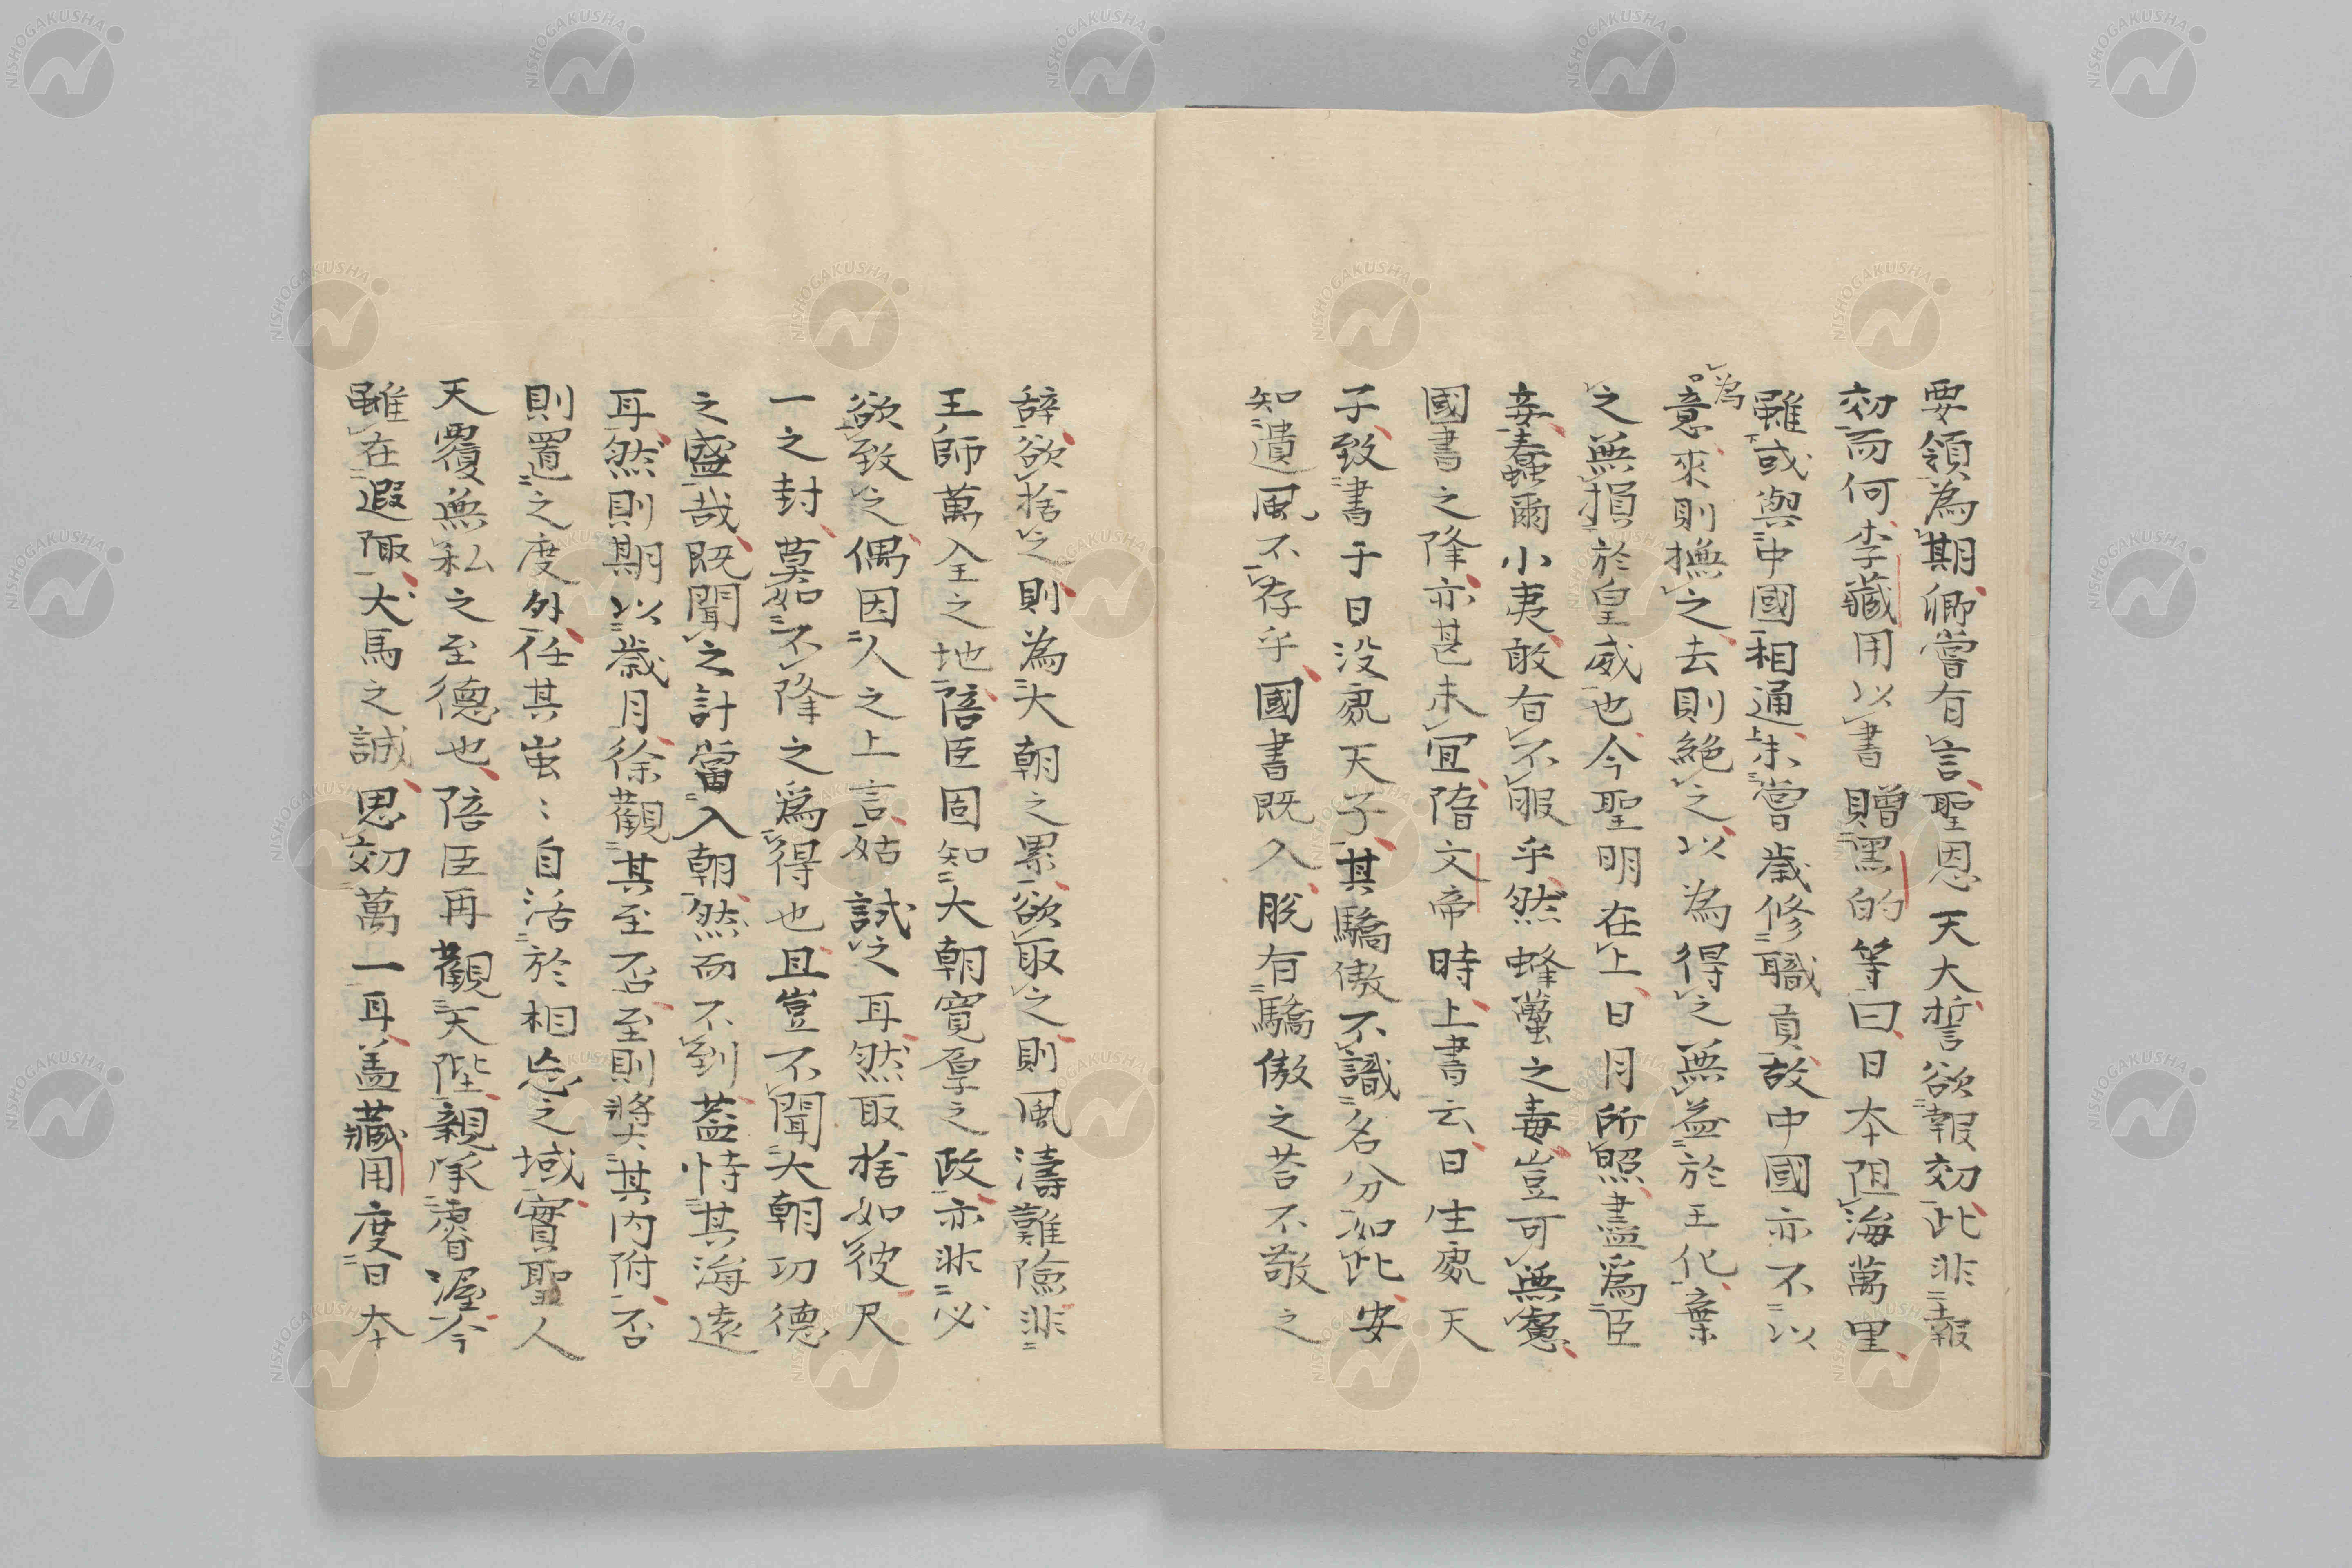 要領為期卿嘗有言聖恩天大誓欲報効此非報
効而何李藏用以書贈黒的等曰日本阻海萬里
雖或與中國相通未嘗歳修職貢故中國亦不以
為
意來則撫之去則絶之以為得之無益於王化棄
之無損於皇威也今聖明在上日月所照盡爲臣
妾蠢爾小夷敢有不服乎然蜂蠆之毒豈可無慮
國書之降亦甚未宜隋文帝時上書云日生処天
子致書于日没処天子其驕傲不識名分如此安
知遺風不存乎國書既入脱有驕傲之荅不敬之
辞欲捨之則為大朝之累欲取之則風濤難險非
王師萬全之地陪臣固知大朝寛厚之政亦非必
欲致之偶因人之上言姑試之耳然取捨如彼尺
一之封莫如不降之爲得也且豈不聞大朝功德
之盛哉既聞之計當入朝然而不到葢恃其海遠
耳然則期以歳月徐觀其至否至則奬其内附否
則置之度外任其蚩〻自活於相忘之域實聖人
天覆無私之至德也陪臣再觀天陛親承睿渥今
雖在遐陬犬馬之誠思効萬一耳盖藏用度日本
NISHOGAKUSHA